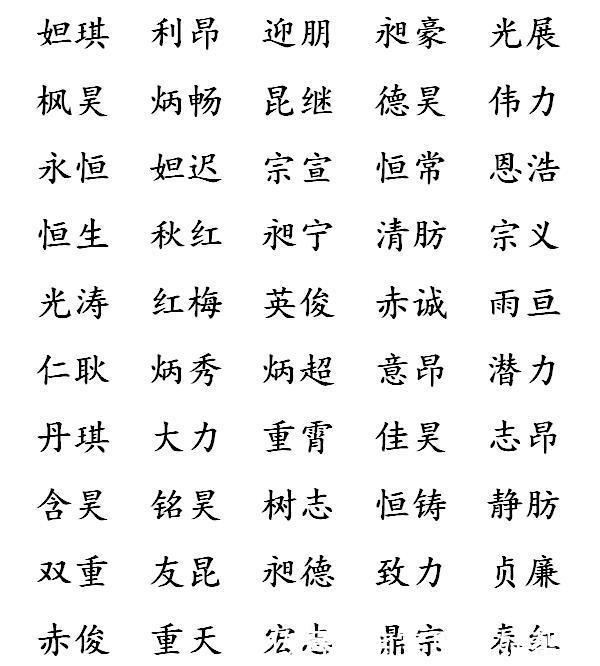 妲琪 利昂 迎朋 昶豪 光展
枫昊 炳畅 昆继 德昊 伟力
永恒 妲迟 宗宣 恒常 恩浩
恒生 秋红 昶宁 清肪 宗义
光涛 红梅 英俊 赤诚 雨亘
仁耿 炳秀 炳超 意昂 潜力
丹琪 大力 重霄 佳昊 志昂
含昊 铭昊 树志 恒铸 静肪
双重 友昆 昶德 致力 贞廉
赤俊 重天 宏志 鼎宗 春红